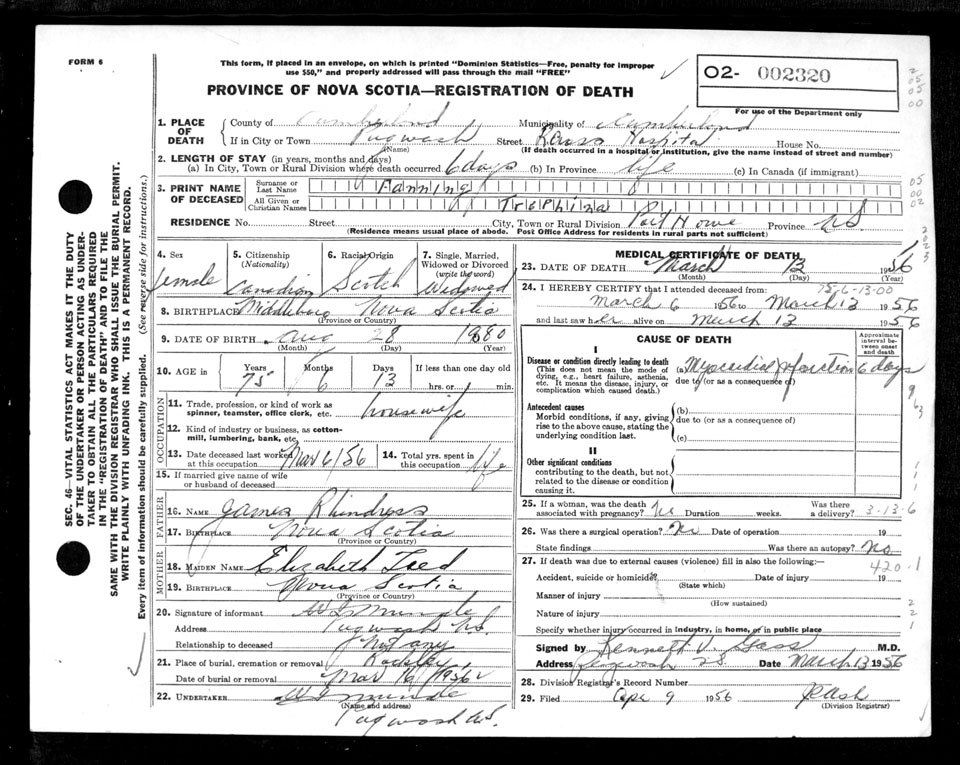 FORM 6
This form, if placed in an envelope, on which is printed "Dominion Statistics—Free, penalty for improper
use $50," and properly addressed will pass through the mail "FREE"
02- 002320
For use of the Department only
PROVINCE OF NOVA SCOTIA—REGISTRATION OF DEATH
1. PLACE OF DEATH
County of Cumberland Municipality of Cumberland
If in City or Town Pugwash Street Hospital House No.
(Name) (If death occurred in a hospital or institution, give the name instead of street and number)
2. LENGTH OF STAY (in years, months and days)
(a) In City, Town or Rural Division where death occurred 6 days (b) In Province life (c) In Canada (if immigrant)
3. PRINT NAME OF DECEASED
Surname or Last Name Fanning
All Given or Christian Names Trephina
RESIDENCE No. Street City, Town or Rural Division Port Howe Province NS
(Residence means usual place of abode. Post Office Address for residents in rural parts not sufficient)
4. Sex female
5. Citizenship (Nationality) Canadian
6. Racial Origin Scotch
7. Single, Married, Widowed or Divorced (write the word) Widowed
8. BIRTHPLACE Middleboro Nova Scotia
(Province or Country)
9. DATE OF BIRTH Aug 28 1880
(Month) (Day) (Year)
10. AGE in Years 75 Months 6 Days 13 If less than one day
hrs. or min.
OCCUPATION
11. Trade, profession, or kind of work as spinner, teamster, office clerk, etc. housewife
12. Kind of industry or business, as cotton-mill, lumbering, bank, etc.
13. Date deceased last worked at this occupation Mar 6/56
14. Total yrs. spent in this occupation life
15. If married give name of wife or husband of deceased
FATHER
16. NAME James Rhindress
17. BIRTHPLACE Nova Scotia
(Province or Country)
MOTHER
18. MAIDEN NAME Elizabeth Teed
19. BIRTHPLACE Nova Scotia
(Province or Country)
20. Signature of informant
Address Pugwash N.S.
Relationship to deceased
21. Place of burial, cremation or removal
Date of burial or removal Mar 16 1956
22. UNDERTAKER
(Name and address)
Pugwash N.S.
MEDICAL CERTIFICATE OF DEATH
23. DATE OF DEATH March 13 1956
(Month) (Day) (Year)
75-6-13-00
24. I HEREBY CERTIFY that I attended deceased from:
March 6 1956 to March 13 1956
and last saw her alive on March 13 1956
CAUSE OF DEATH
Approximate interval between onset and death
I
Disease or condition directly leading to death
(This does not mean the mode of dying, e.g., heart failure, asthenia, etc. It means the disease, injury, or complication which caused death.)
(a) Myocardial Infarction 6 days
due to (or as a consequence of)
Antecedent causes
Morbid conditions, if any, giving rise to the above cause, stating the underlying condition last.
(b)
due to (or as a consequence of)
(c)
II
Other significant conditions
contributing to the death, but not related to the disease or condition causing it.
25. If a woman, was the death associated with pregnancy? No Duration weeks. Was there a delivery?
3-13-6
26. Was there a surgical operation? No Date of operation 19
State findings Was there an autopsy? No
27. If death was due to external causes (violence) fill in also the following:
420-1
Accident, suicide or homicide? Date of injury 19
(State which)
Manner of injury
(How sustained)
Nature of injury
Specify whether injury occurred in industry, in home, or in public place
Signed by Kenneth V. Gass M.D.
Address Pugwash NS Date March 13 1956
28. Division Registrar's Record Number
29. Filed Apr 9 1956
(Division Registrar)
SEC. 46—VITAL STATISTICS ACT MAKES IT THE DUTY
OF THE UNDERTAKER OR PERSON ACTING AS UNDER-
TAKER TO OBTAIN ALL THE PARTICULARS REQUIRED
IN THE "REGISTRATION OF DEATH" AND TO FILE THE
SAME WITH THE DIVISION REGISTRAR WHO SHALL ISSUE THE BURIAL PERMIT.
WRITE PLAINLY WITH UNFADING INK. THIS IS A PERMANENT RECORD.
Every item of information should be carefully supplied. (See reverse side for instructions.)